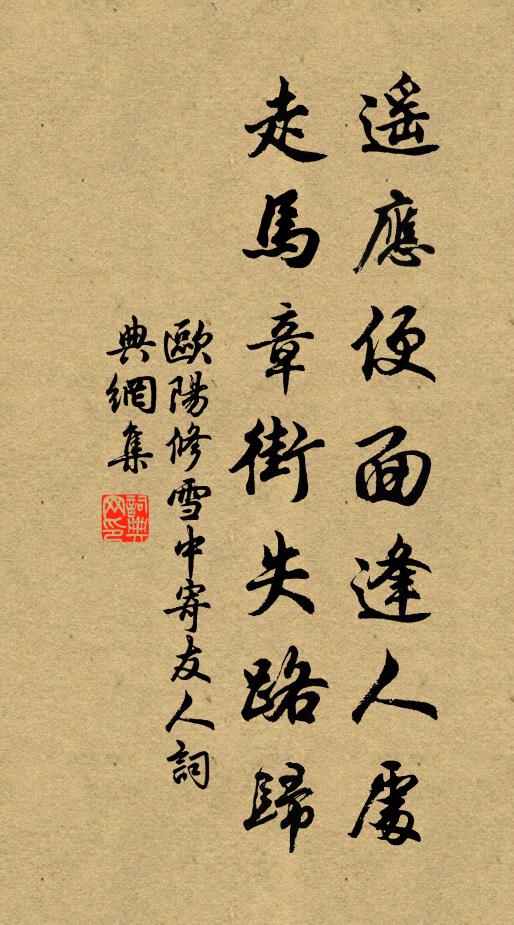 遥應便面逢人處
走馬章街失路歸
歐陽修雪中寄友人詞
典網集
詞典網印